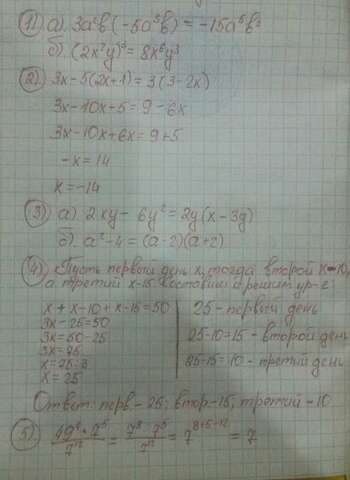 1) а). 3a²b(-5a³b) = -15a⁵b²
б) (2x²y)³ = 8x⁶y³
2) 3x-5(2x+1) = 3(3-2x)
3x-10x+5 = 9-6x
3x-10x+6x = 9+5
-x = 14
x = -14
3) а). 2xy - 6y² = 2y(x-3y)
б). a²-4 = (a-2)(a+2)
4) Пусть первый день x, тогда второй x-10,
а третий x-15. Составим и решим ур-е:
x + x-10 + x-15 = 50
3x-25=50
3x=50-25
3x=75
x=75:3
x=25
25 - первый день
25-10=15 - второй день
25-15=10 - третий день
Ответ: перв-25; втор-15; третий-10
5) 49⁴·7⁵/7¹² = 7⁸·7⁵/7¹² = 7⁸⁺⁵⁻¹² = 7